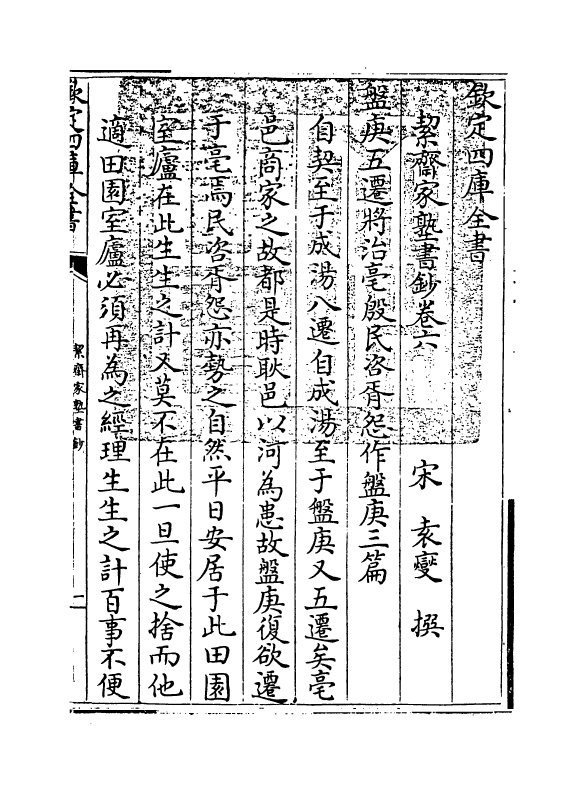 欽定四庫全書
絜齋家塾書鈔卷六
宋 袁燮 撰
盤庚五遷將治亳殷民咨胥怨作盤庚三篇
自契至于成湯八遷自成湯至于盤庚又五遷矣亳
邑商家之故都是時耿邑以河為患故盤庚復欲遷
于亳焉民咨胥怨亦勢之自然平日安居于此田園
室廬在此生生之計又莫不在此一旦使之捨而他
適田園室廬必須再為之經理生生之計百事不便
欽定四庫全書
絜齋家塾書鈔
一